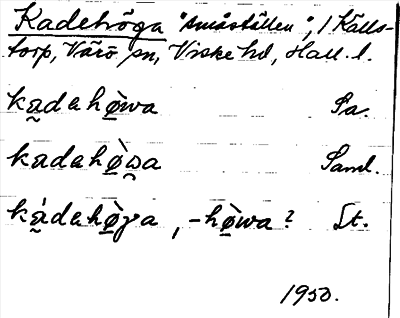 Kadehöga "småställen", i Källs-
torp, Värö sn, Viske hd, Hall. l.
ka̰dahø̀wa Sa.
kadahø̀w̯a Saml.
ká̰dahø̀γa, -hø̀wa? Lt.
1950.